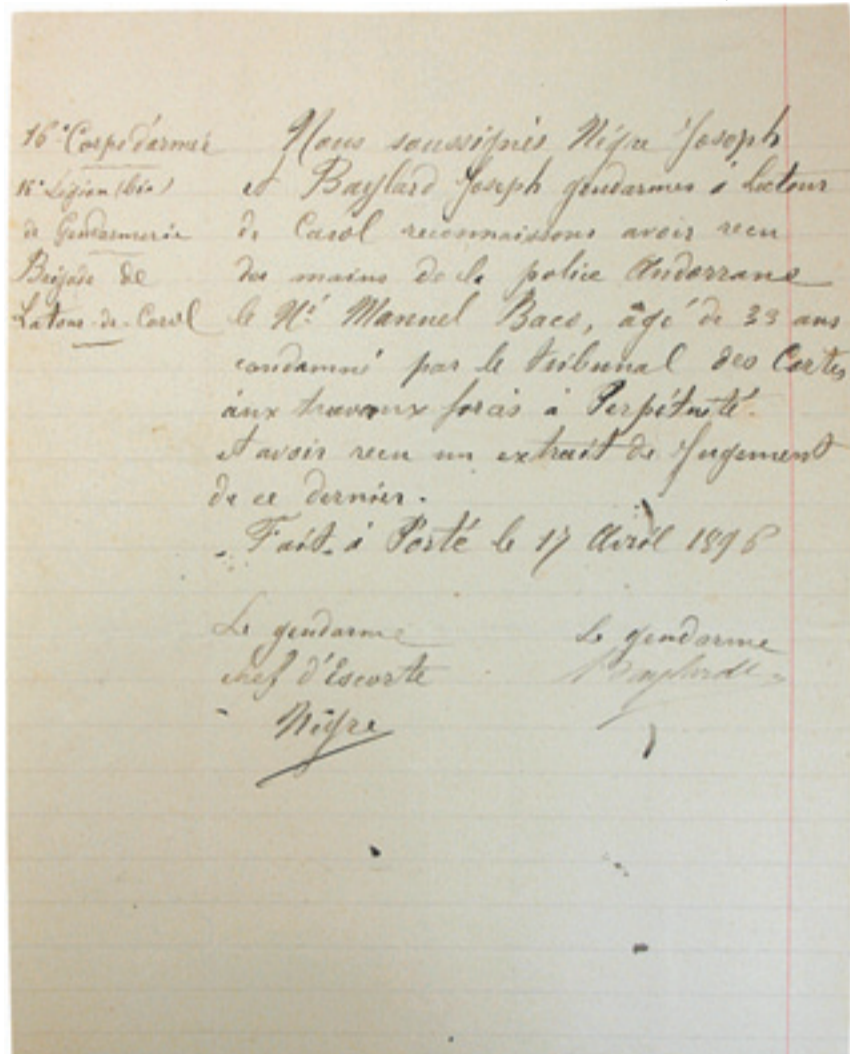 16e Corps d'armée
16e Légion (bis)
de Gendarmerie
Brigade de
Latour-de-Carol
Nous soussignés Nègre Joseph
et Baylard Joseph gendarmes à Latour
de Carol reconnaissons avoir recu
des mains de la police Andorrane
le Né Manuel Baco, âgé de 33 ans
condamné par le tribunal des Cortes
aux travaux forcés à Perpétuité.
et avoir recu un extrait de Jugement
de ce dernier.
Fait à Porté le 17 Avril 1896
Le gendarme
chef d'Escorte
Nègre
Le gendarme
Baylard